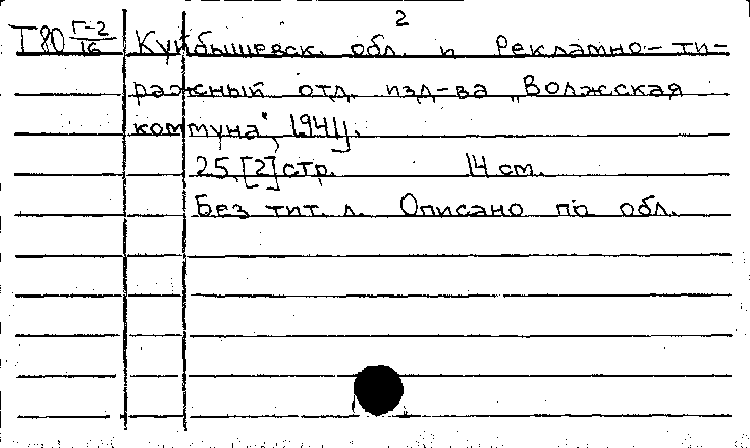 2
Т80 Г-2/16 Куйбышевск. обл. и Рекламно-ти-
ражный отд. изд-ва „Волжская
коммуна", 1941].
25, [2] стр. 14 см.
Без тит. л. Описано по обл.